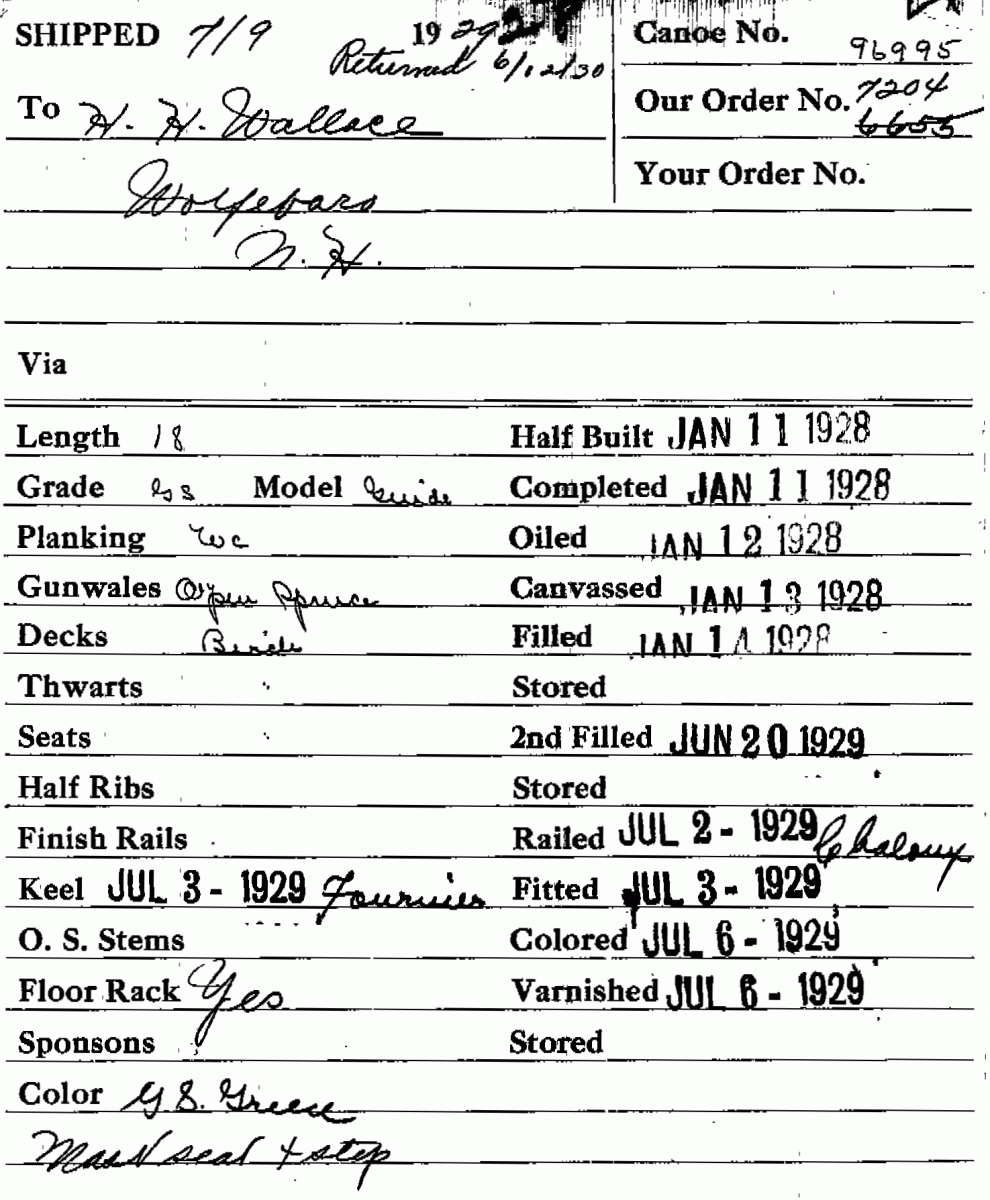 SHIPPED 7/9 1929 Canoe No. 96995
Returned 6/12/30
To H. H. Wallace Our Order No. 7204
6655
Wolfeboro Your Order No.
N. H.
Via
Length 18 Half Built JAN 11 1928
Grade Model Guide Completed JAN 11 1928
Planking WC Oiled JAN 12 1928
Gunwales Open Spruce Canvassed JAN 13 1928
Decks Birch Filled JAN 14 1928
Thwarts " Stored
Seats " 2nd Filled JUN 20 1929
Half Ribs Stored
Finish Rails Railed JUL 2 - 1929 Chaloux
Keel JUL 3 - 1929 Fournier Fitted JUL 3 - 1929
O. S. Stems Colored JUL 6 - 1929
Floor Rack Yes Varnished JUL 6 - 1929
Sponsons Stored
Color G S. Green
Mast seat + step